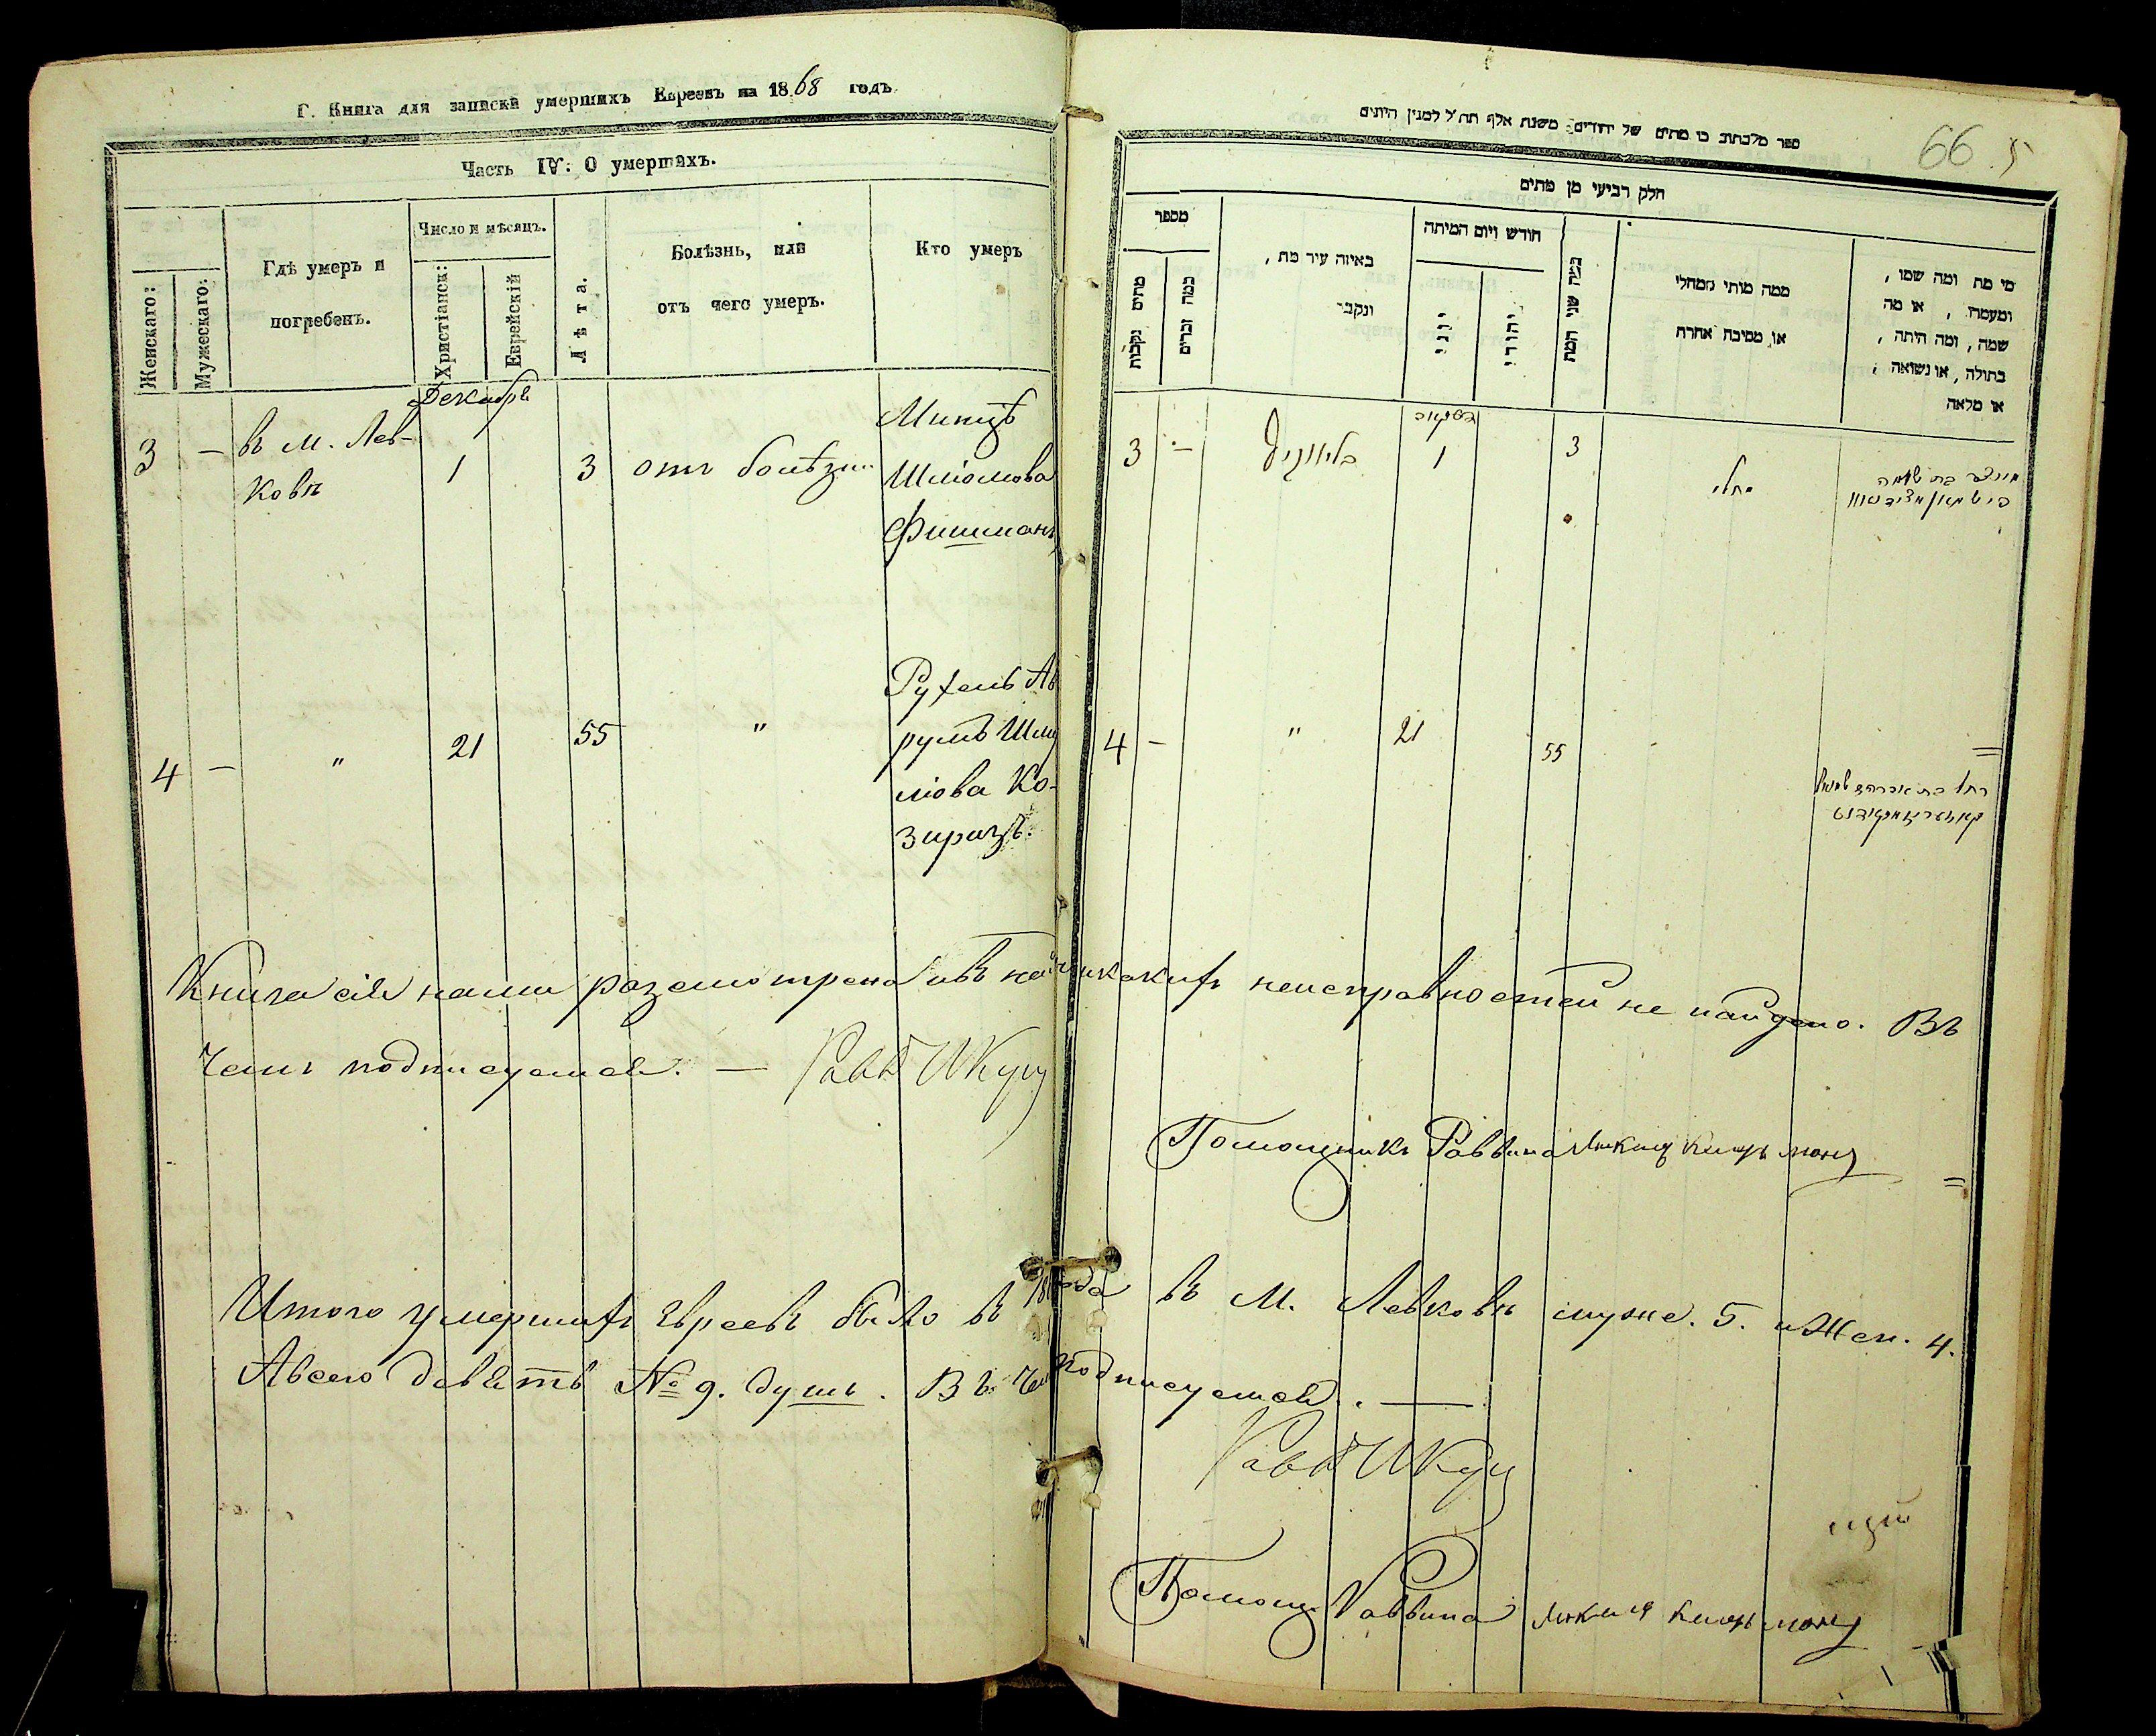 Г. Книга для записки умершихъ Евреевъ на 1868 годъ
Часть IV: О умершихъ.
Женскаго:
Мужескаго:
Гдѣ умеръ и
погребенъ.
Число и мѣсяцъ.
Христіанск:
Еврейскій
Лѣта.
Болѣзнь, или
отъ чего умеръ.
Кто умеръ
Декабря
3 — въ м. Лев-
ковѣ
1
3
отъ болѣзни
Минцѣ
Шліомова
Фишманъ
4 — " 21 55 "
Рухель Аб
румъ Шму
ліова Ко-
зирацъ.
Книга сія нами разсмотрена и въ ней никакихъ неисправностей не найдено. Въ
чемъ подписуемся. —
Помощникъ Раввина
Итого умершихъ Евреевъ было въ 18 года въ м. Левковѣ муже. 5. и Жен. 4.
Авсего девять № 9. душъ. Въ чем подписуемся. —
Помощ Раввина
ספר מלכתוב בו מתים של יהודים משנת אלף תת״ל למנין היונים
66
חלק רביעי מן מתים
מספר
מתים נקבות
כמה זכרים
באיזה עיר מת,
ונקבר
חודש ויום המיתה
יוני
יהודי
כמה שני המת
ממה מותו ממחלי
או מסיבת אחרת
מי מת ומה שמו,
ומעמדו, או מה
שמה, ומה היתה,
בתולה, או נשואה,
או מלאה
3 — 1 3
4 — " 21 55